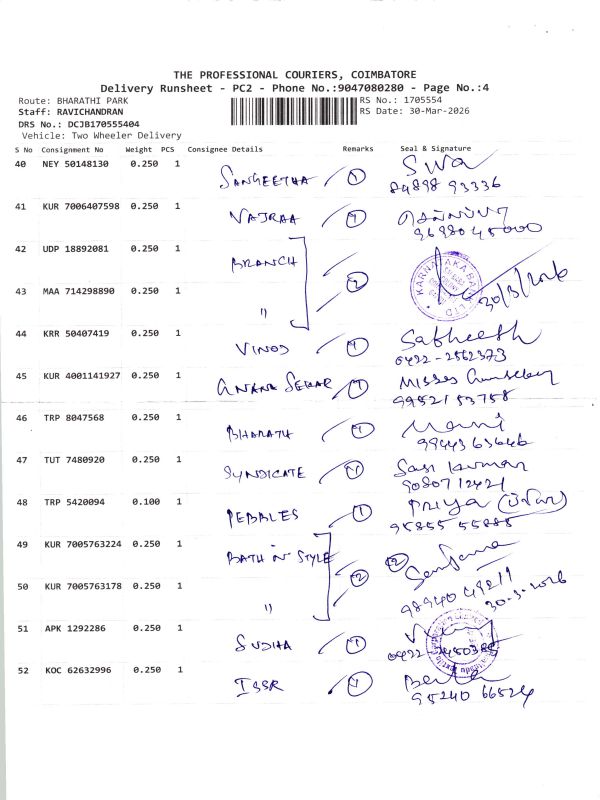 THE PROFESSIONAL COURIERS, COIMBATORE
Delivery Runsheet - PC2 - Phone No.:9047080280 - Page No.:4
Route: BHARATHI PARK
RS No.: 1705554
Staff: RAVICHANDRAN
RS Date: 30-Mar-2026
DRS No.: DCJB170555404
Vehicle: Two Wheeler Delivery
S No Consignment No Weight PCS Consignee Details Remarks Seal & Signature
40 NEY 50148130 0.250 1 SANGEETHA 1 Swa
84898 93336
41 KUR 7006407598 0.250 1 VAJRAA 1
9698045000
42 UDP 18892081 0.250 1 BRANCH 2 KARNATAKA BANK LTD
43 MAA 714298890 0.250 1 " 30/3/2026
44 KRR 50407419 0.250 1 VINOD 1 Satheesh
0422-2562373
45 KUR 4001141927 0.250 1 GNANA SEKAR 1
99521 53758
46 TRP 8047568 0.250 1 BHARATH 1 Mani
9944363646
47 TUT 7480920 0.250 1 SYNDICATE 1 Sasi kumar
9080712421
48 TRP 5420094 0.100 1 PEBBLES 1 Priya
95855 55885
49 KUR 7005763224 0.250 1 BATH n STYLE 2 2 Sanjana
50 KUR 7005763178 0.250 1 " 98940 49211
30-3-2026
51 APK 1292286 0.250 1 SUDHA 1
0422
52 KOC 62632996 0.250 1 ISSR 1
95240 66524